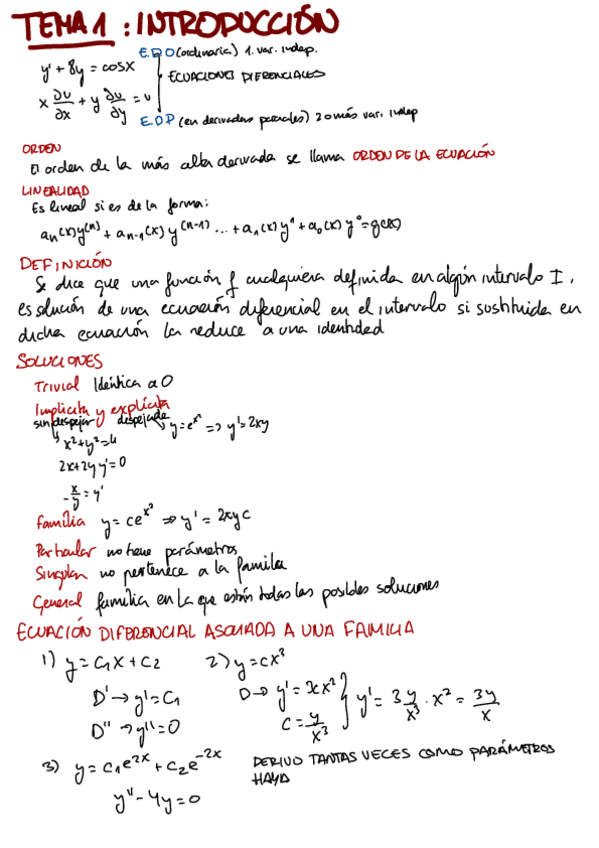 TEMA 1 : INTRODUCCIÓN
E.D.O (ordinaria) 1. var. indep.
y' + 8y = cosx
ECUACIONES DIFERENCIALES
x ∂u/∂x + y ∂u/∂y = u
E.D.P (en derivadas parciales) 2 o más var. indep
ORDEN
El orden de la más alta derivada se llama ORDEN DE LA ECUACIÓN
LINEALIDAD
Es lineal si es de la forma:
aₙ(x)y⁽ⁿ⁾ + aₙ₋₁(x) y⁽ⁿ⁻¹⁾ ... + a₁(x) y¹ + a₀(x) y⁰ = g(x)
DEFINICIÓN
Se dice que una función f cualquiera definida en algún intervalo I,
es solución de una ecuación diferencial en el intervalo si sustituida en
dicha ecuación la reduce a una identidad
SOLUCIONES
Trivial Idéntica a 0
Implícita y explícita
sin despejar despejada → y = e^x² => y' = 2xy
x² + y² = 4
2x + 2y y' = 0
-x/y = y'
Familia y = ce^x² => y' = 2xyc
Particular no tiene parámetros
Singular no pertenece a la familia
General familia en la que están todas las posibles soluciones
ECUACIÓN DIFERENCIAL ASOCIADA A UNA FAMILIA
1) y = C₁x + C₂ 2) y = cx³
D' → y' = C₁ D → y' = 3cx² } y' = 3 y/x³ · x² = 3y/x
D'' → y'' = 0 C = y/x³
3) y = c₁e^2x + c₂e^-2x DERIVO TANTAS VECES COMO PARÁMETROS
HAYA
y'' - 4y = 0